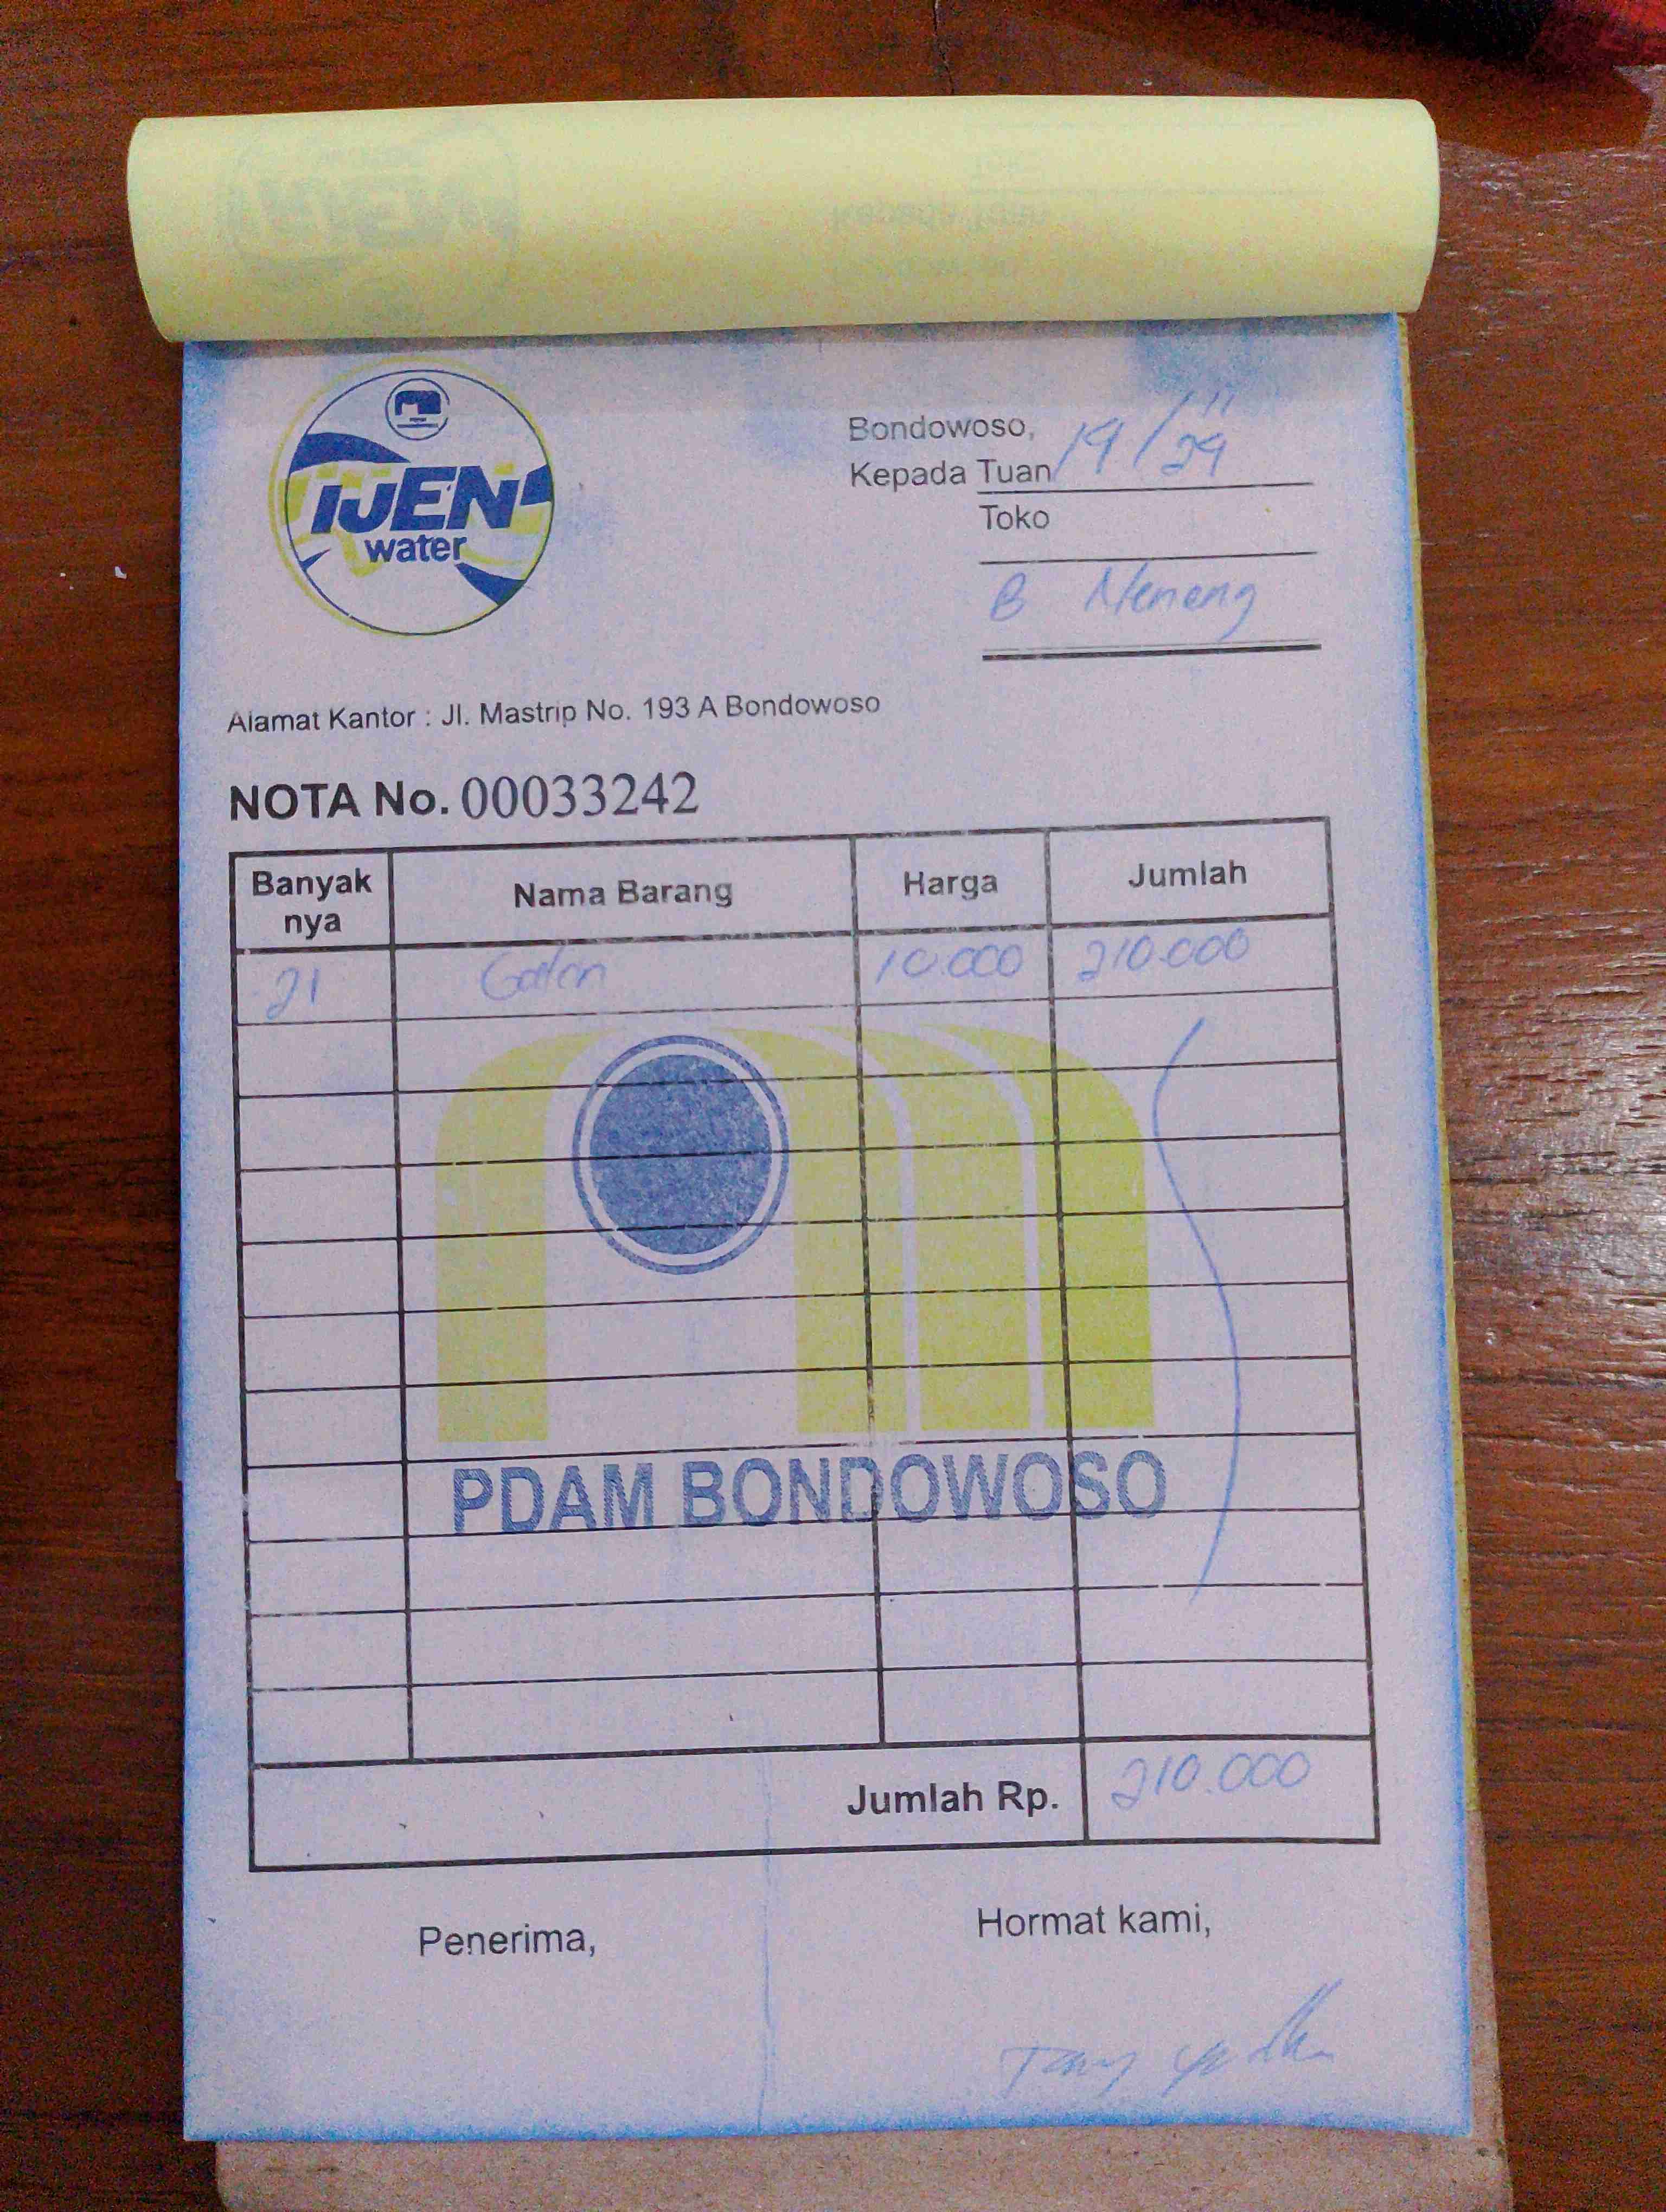 IJEN
water
Bondowoso, 19/11
24
Kepada Tuan
Toko
B Neneng
Alamat Kantor : Jl. Mastrip No. 193 A Bondowoso
NOTA No. 00033242
Banyak nya Nama Barang Harga Jumlah
21 Galon 10.000 210.000
PDAM BONDOWOSO
Jumlah Rp. 210.000
Penerima, Hormat kami,